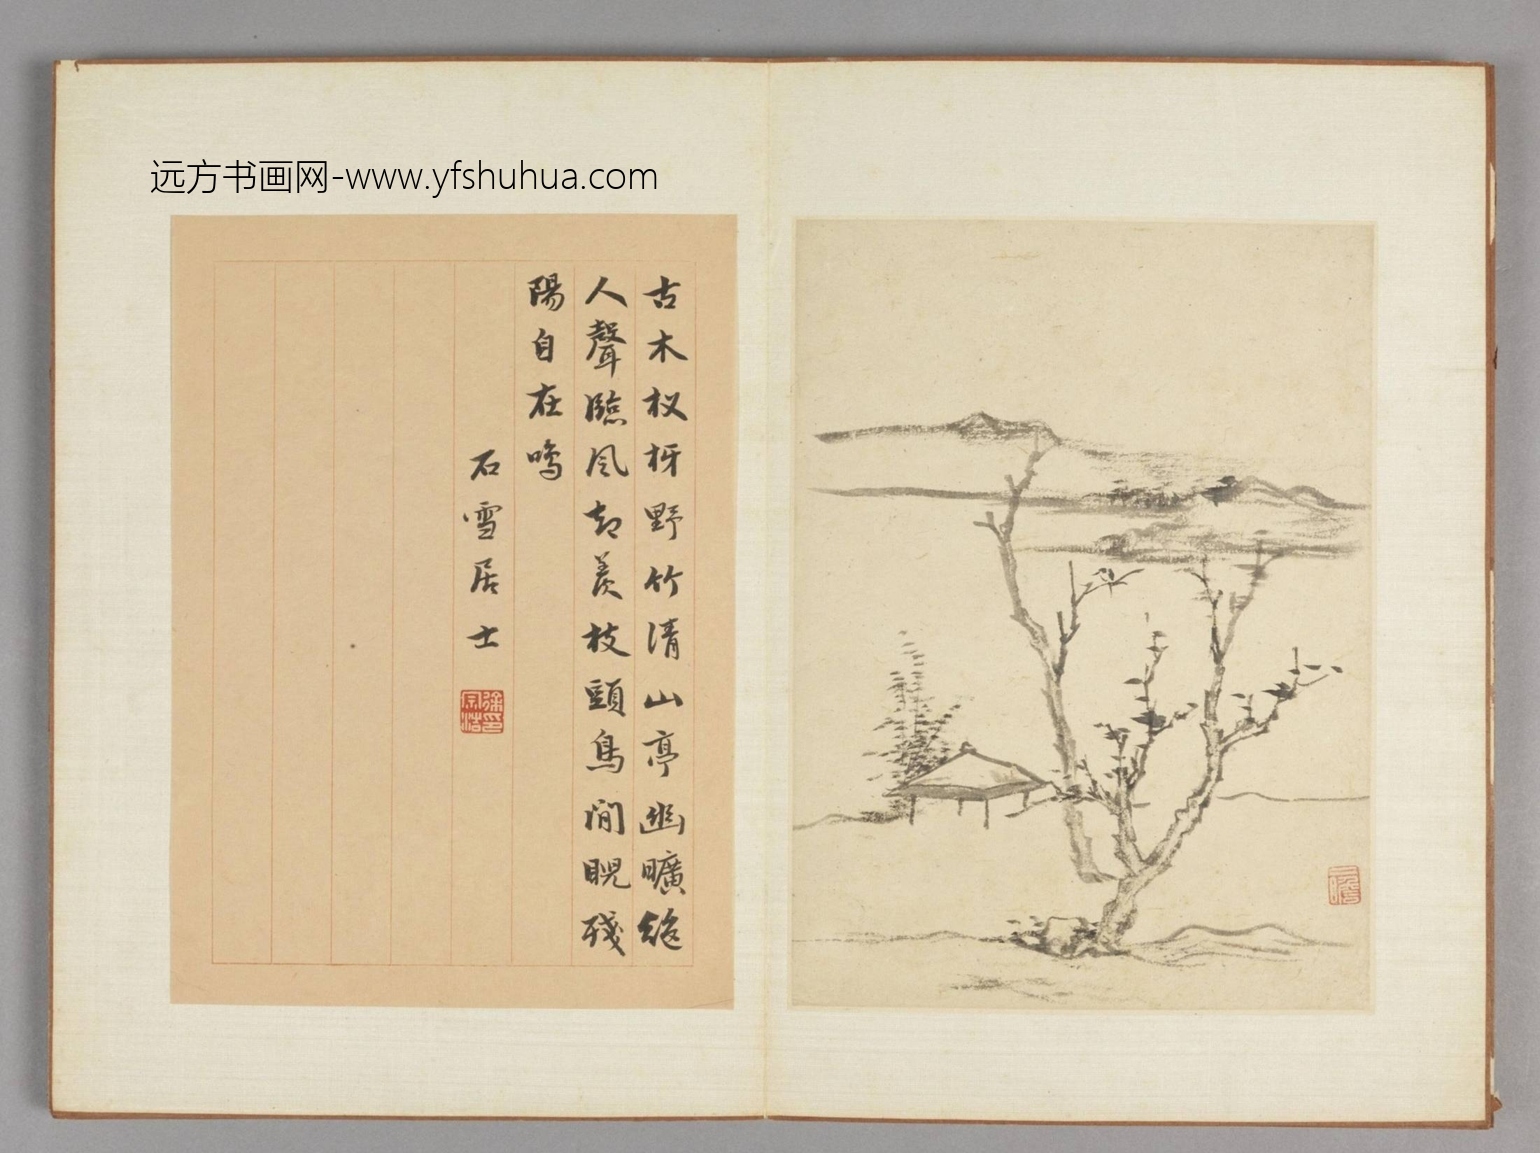 远方书画网-www.yfshuhua.com
古木杈枒野竹清山亭幽曠絶
人聲臨風却羨枝頭鳥閒睨殘
陽自在鳴
石雪居士
徐印宗浩